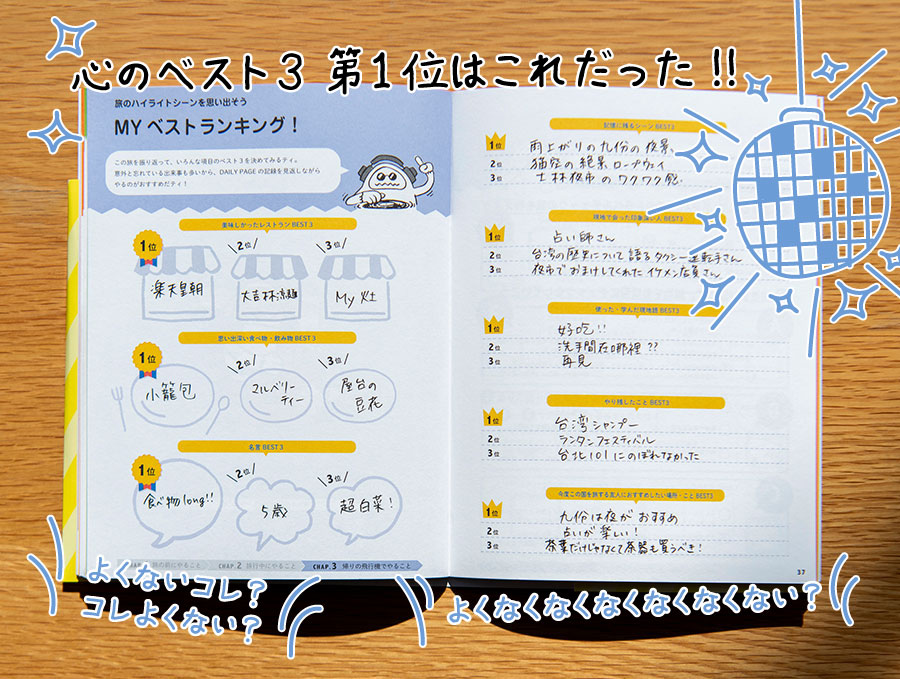 心のベスト3 第1位はこれだった!!
旅のハイライトシーンを思い出そう
MYベストランキング！
この旅を振り返って、いろんな項目のベスト3を決めてみるティ。
意外と忘れている出来事も多いから、DAILY PAGEの記録を見返しながら
やるのがおすすめだティ！
美味しかったレストランBEST3
1位 2位 3位
楽天皇朝 大吉林涼麺 My 灶
思い出深い食べ物・飲み物BEST3
1位 2位 3位
小籠包 マルベリーティー 屋台の豆花
名言BEST3
1位 2位 3位
食べ物long!! 5歳 超白菜!
旅の前にやること CHAP.2 旅行中にやること CHAP.3 帰りの飛行機でやること
記憶に残るシーンBEST3
1位 雨上がりの九份の夜景。
2位 猫空の絶景ロープウェイ
3位 士林夜市のワクワク感。
現地で会った印象深い人BEST3
1位 占い師さん
2位 台湾の歴史について語るタクシー運転手さん
3位 夜市でおまけしてくれたイケメン店員さん
使った・学んだ現地語BEST3
1位 好吃!!
2位 洗手間在哪裡??
3位 再見
やり残したことBEST3
1位 台湾シャンプー
2位 ランタンフェスティバル
3位 台北101にのぼれなかった
今度この国を旅する友人におすすめしたい場所・ことBEST3
1位 九份は夜がおすすめ
2位 占いが楽しい!
3位 茶葉だけじゃなくて茶器も買うべき!
37
よくないコレ?
コレよくない?
よくなくなくなくなくなくない?